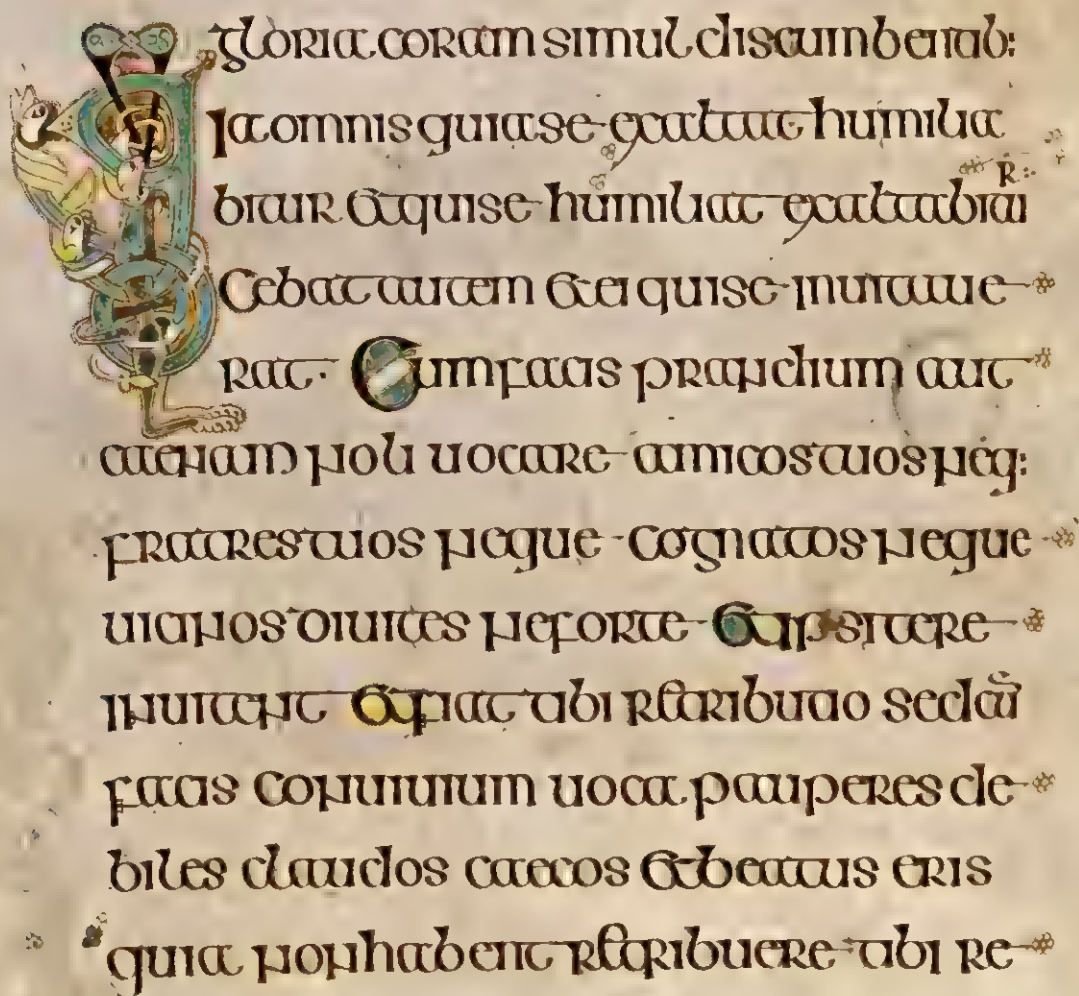 gloria coram simul discumbentib:
Ia omnis quia se exaltat humilia
bitur et qui se humiliat exaltabitu R:
Cebat autem et ei qui se inuitaue
rat · Cum facis prandium aut
caenam noli uocare amicos tuos neq:
fratres tuos neque cognatos neque
uicinos diuites ne forte et ipsi te re
inuitent et fiat tibi retributio sed cū
facis conuiuium uoca pauperes de
biles claudos caecos et beatus eris
quia non habent retribuere tibi re